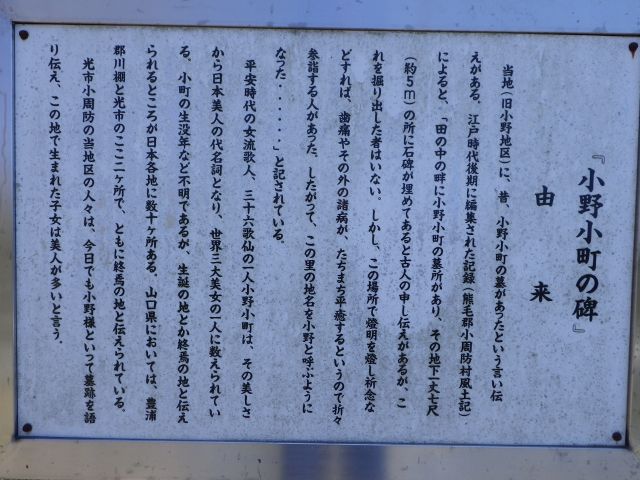 『小野小町の碑』
由来
当地（旧小野地区）に、昔、小野小町の墓があったという言い伝
えがある。江戸時代後期に編集された記録（熊毛郡小周防村風土記）
によると、「田の中の畔に小野小町の墓所があり、その地下一丈七尺
（約５ｍ）の所に石碑が埋めてあると古人の申し伝えがあるが、こ
れを掘り出した者はいない。しかし、この場所で燈明を燈し祈念な
どすれば、歯痛やその外の諸病が、たちまち平癒するというので折々
参詣する人があった。したがって、この里の地名を小野と呼ぶように
なった・・・・・・」と記されている。
平安時代の女流歌人、三十六歌仙の一人小野小町は、その美しさ
から日本美人の代名詞となり、世界三大美女の一人に数えられてい
る。小町の生没年など不明であるが、生誕の地とか終焉の地と伝え
られるところが日本各地に数十ヶ所ある。山口県においては、豊浦
郡川棚と光市のここ二ヶ所で、ともに終焉の地と伝えられている。
光市小周防の当地区の人々は、今日でも小野様といって墓跡を語
り伝え、この地で生まれた子女は美人が多いと言う。